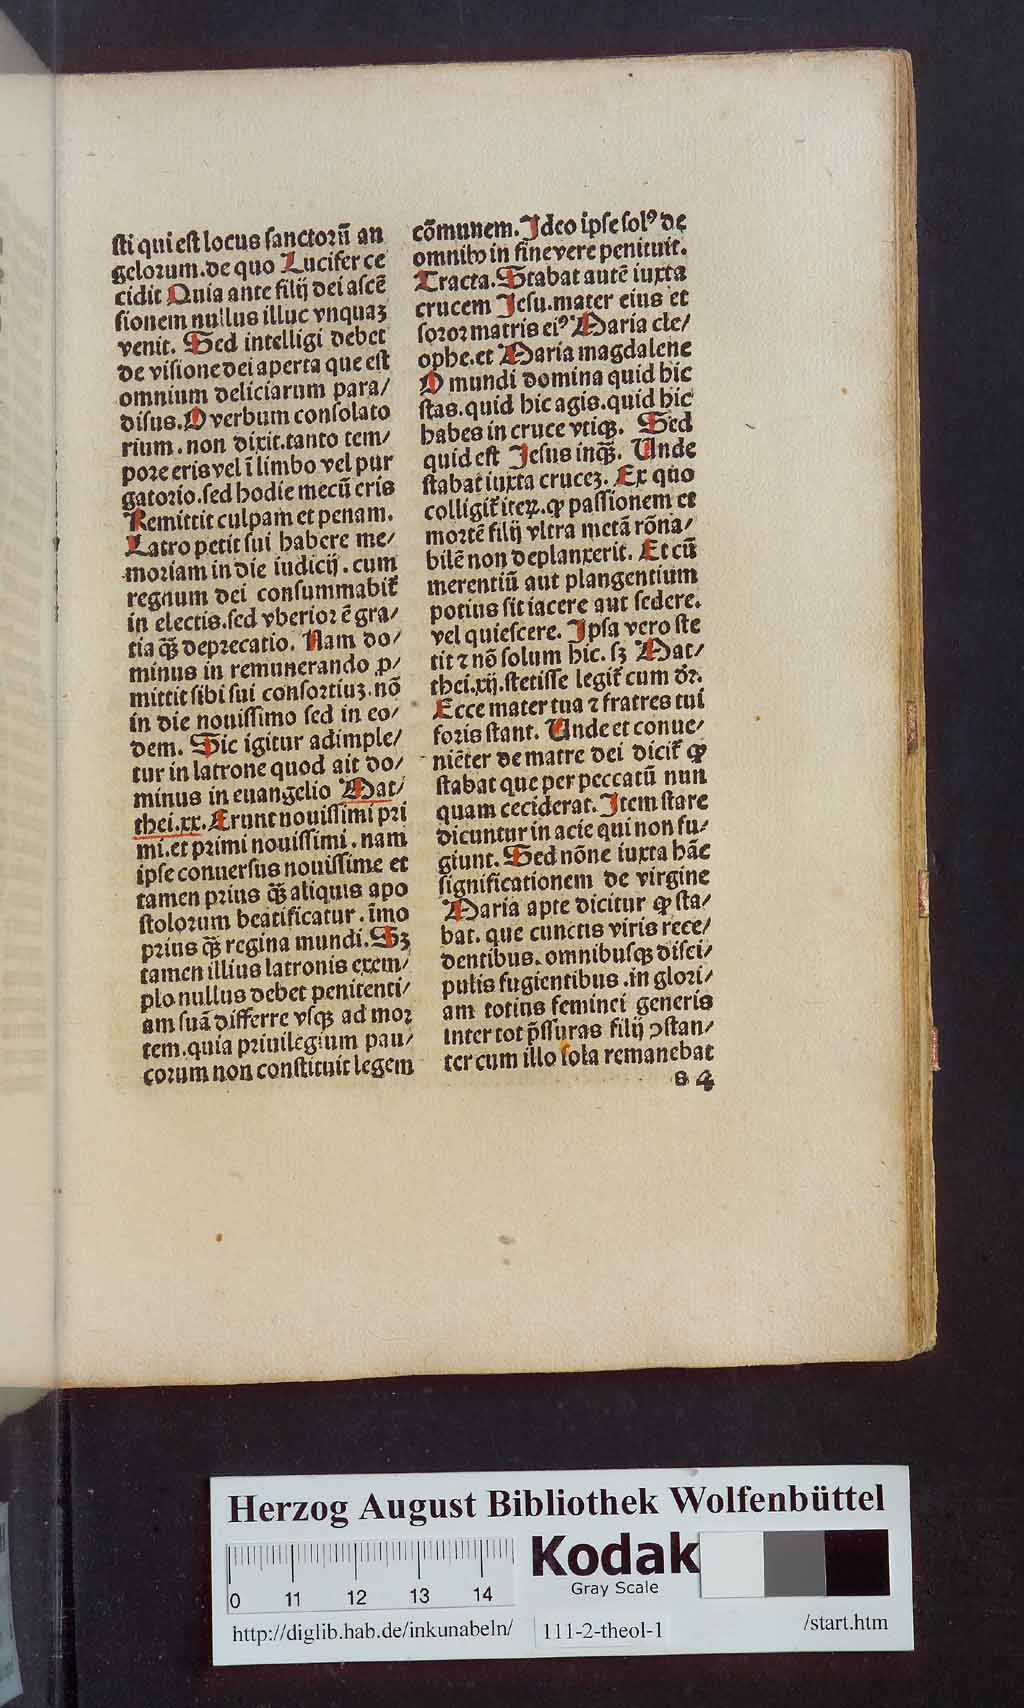 sti qui est locus sanctorū an
gelorum.de quo Lucifer ce
cidit Quia ante filij dei ascē
sionem nullus illuc vnquaꝫ
venit. Sed intelligi debet
de visione dei aperta que est
omnium deliciarum para/
disus. O verbum consolato
rium.non dixit.tanto tem/
pore eris vel ī limbo vel pur
gatorio.sed hodie mecū eris
Remittit culpam et penam.
Latro petit sui habere me/
moriam in die iudicij.cum
regnum dei consummabit᷑
in electis.sed vberior ē gra/
tia q̄ꝫ deprecatio. Nam do/
minus in remunerando ꝓ/
mittit sibi sui consortiuꝫ.nō
in die nouissimo sed in eo/
dem. Sic igitur adimple/
tur in latrone quod ait do/
minus in euangelio Mat/
thei.xx. Erunt nouissimi pri
mi.et primi nouissimi.nam
ipse conuersus nouissime et
tamen prius q̄ꝫ aliquis apo
stolorum beatificatur.īmo
prius q̄ꝫ regina mundi. Sꝫ
tamen illius latronis exem/
plo nullus debet penitenti/
am suā differre vsqꝫ ad mor
tem.quia priuilegium pau/
corum non constituit legem
cōmunem. Ideo ipse solꝰ de
omnibꝰ in fine vere penituit.
Tracta. Stabat autē iuxta
crucem Jesu.mater eius et
soror matris eiꝰ Maria cle/
ophe.et Maria magdalene
O mundi domina quid hic
stas.quid hic agis.quid hic
habes in cruce vtiqꝫ. Sed
quid est Jesus inq̄ꝫ. Unde
stabat iuxta cruceꝫ. Ex quo
colligit᷑ iteꝝ.ꝙ passionem et
mortē filij vltra metā rōna/
bilē non deplanxerit. Et cū
merentiū aut plangentium
potius sit iacere aut sedere.
vel quiescere. Ipsa vero ste
tit ⁊ nō solum hic. sꝫ Mat/
thei.xij.stetisse legit᷑ cum dr̄.
Ecce mater tua ⁊ fratres tui
foris stant. Unde et conue/
niēter de matre dei dicit᷑ ꝙ
stabat que per peccatū nun
quam ceciderat. Item stare
dicuntur in acie qui non fu/
giunt. Sed nōne iuxta hāc
significationem de virgine
Maria apte dicitur ꝙ sta/
bat. que cunctis viris rece/
dentibus.omnibusqꝫ disci/
pulis fugientibus.in glori/
am totius feminei generis
inter tot p̄ssuras filij ꝯstan/
ter cum illo sola remanebat
s 4
Herzog August Bibliothek Wolfenbüttel
Kodak
Gray Scale
0 11 12 13 14
http://diglib.hab.de/inkunabeln/ 111-2-theol-1 /start.htm